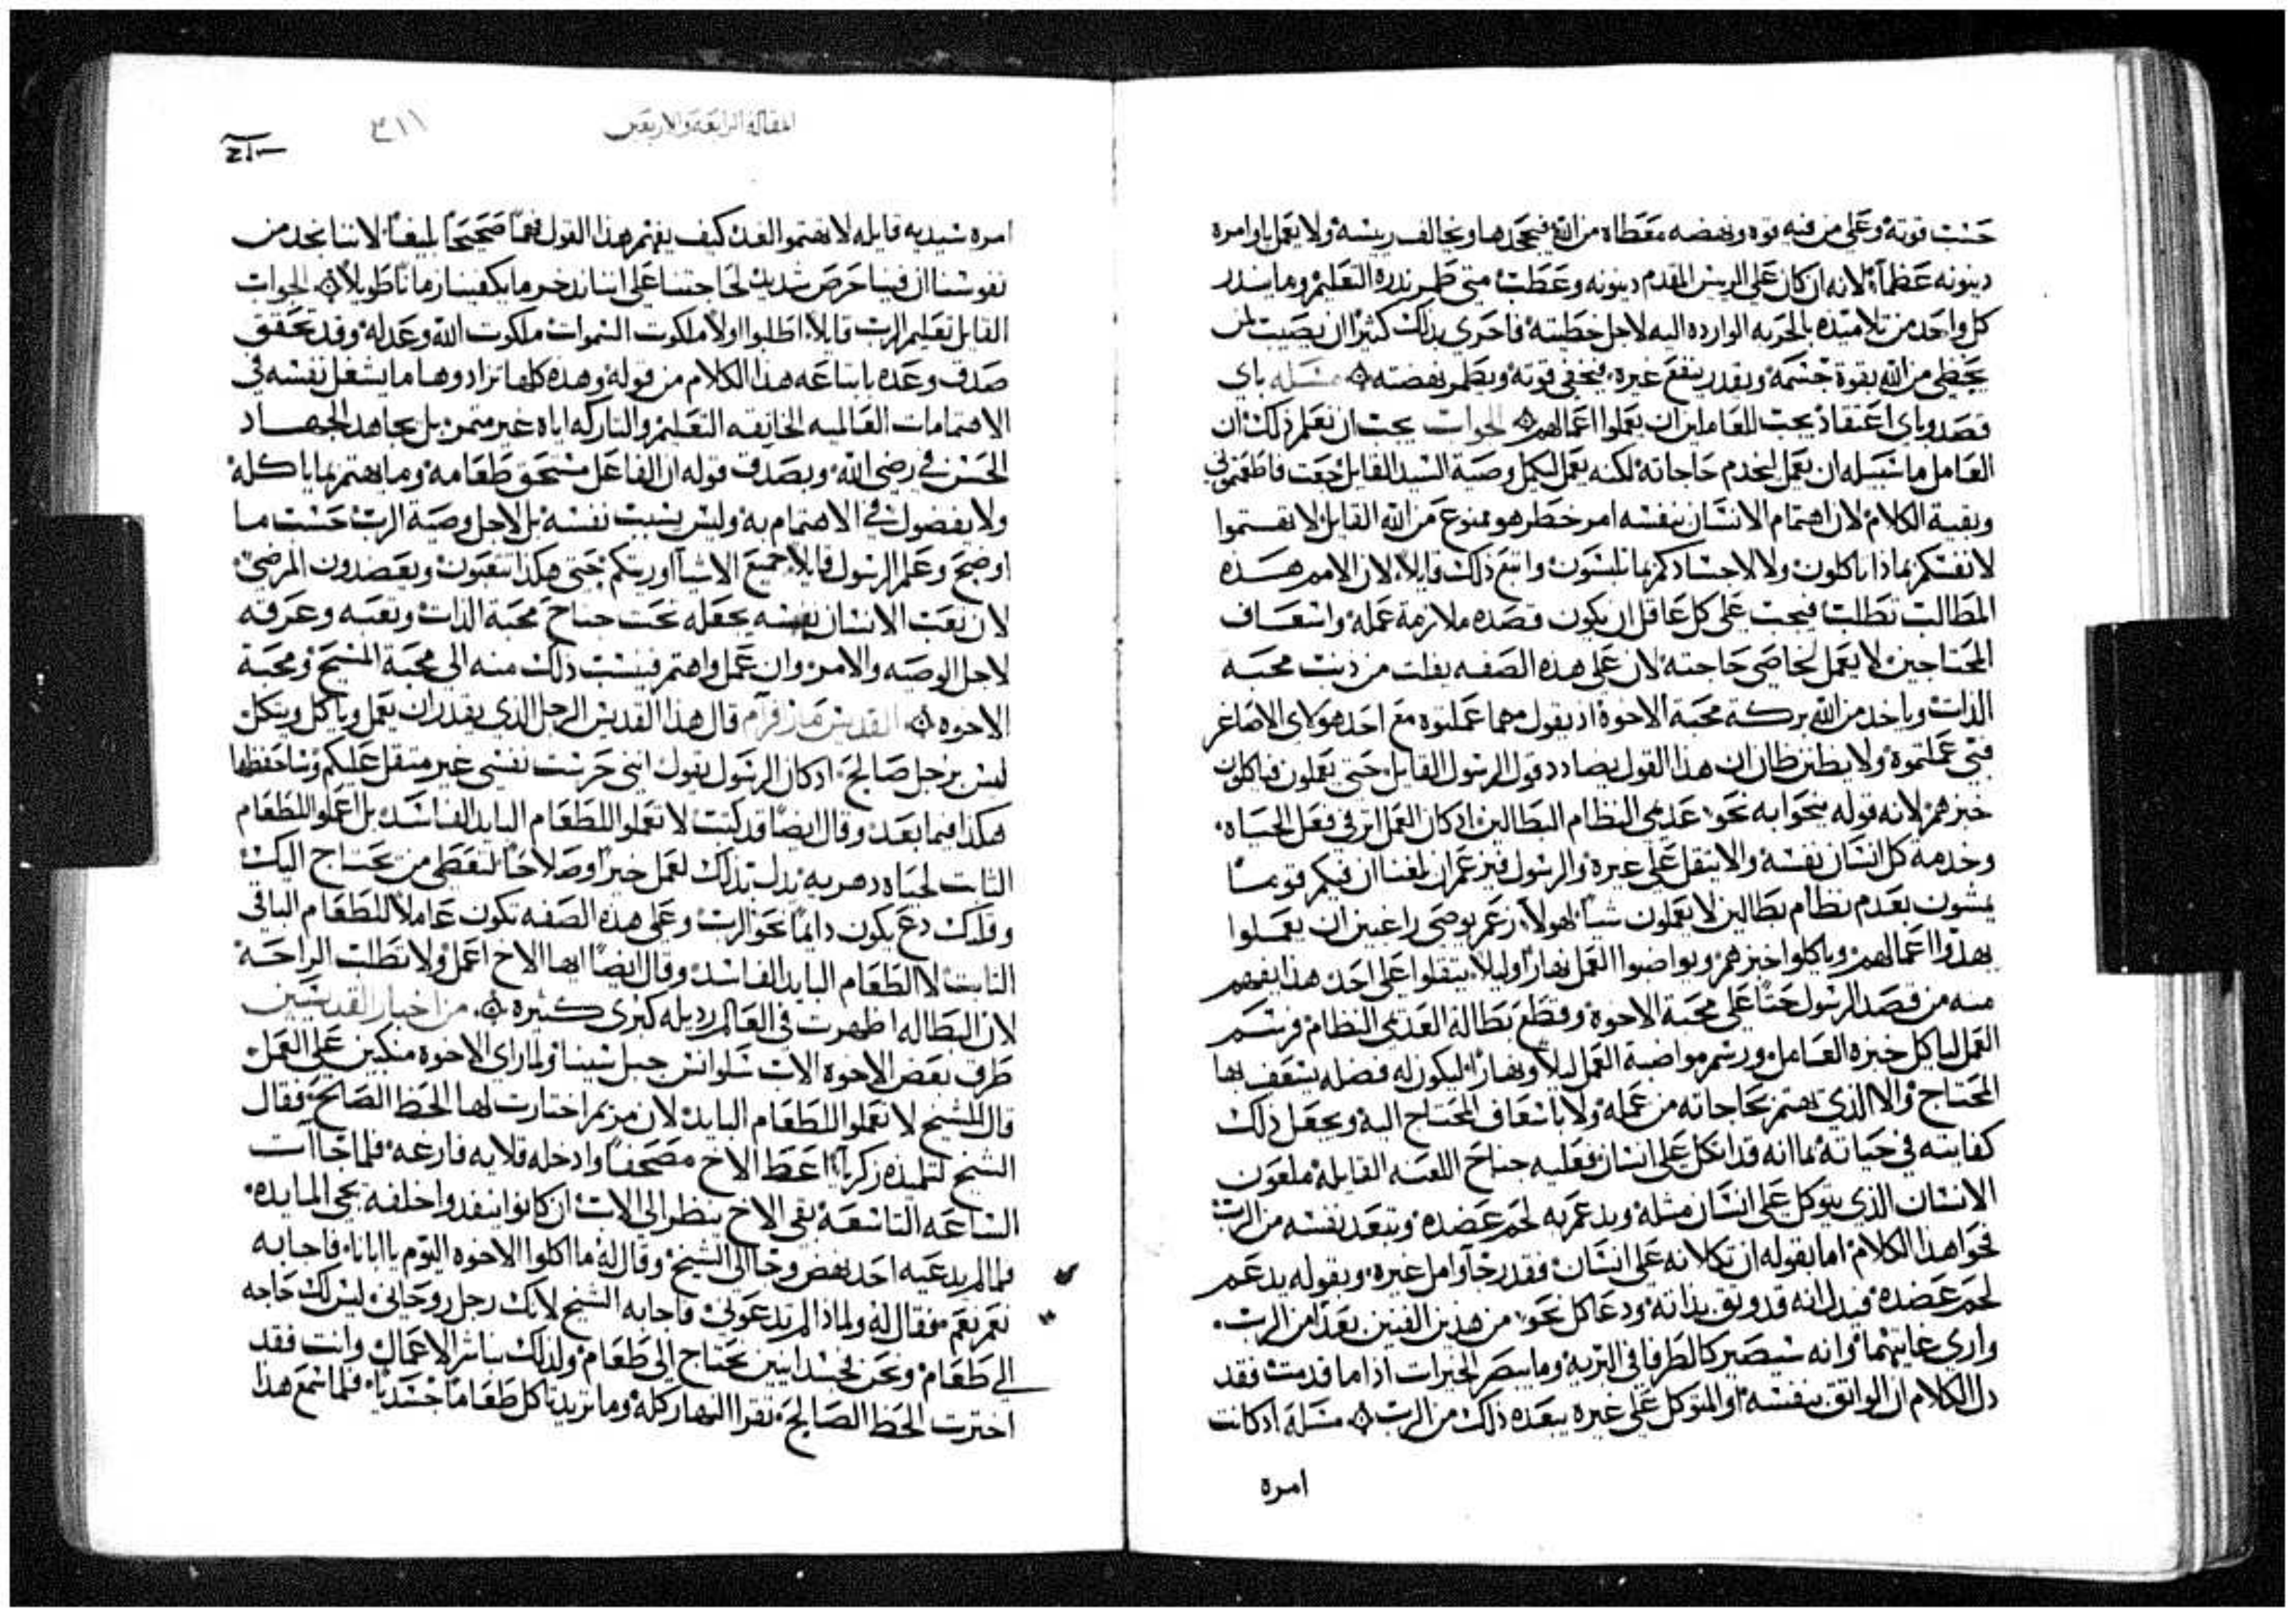 حسب قوته وعلى من فيه قوه ونهضه معطاه من الله فيجحدها ويخالف ريسه ولا يعمل باوامره
دينونه عظما لانه ان كان على الريس المقدم دينونه وعطب متى طمر ندره التعليم وما ينذر
كل واحد من تلاميذه بالحربه الوارده اليه لاجل خطيته فاحرى بذلك كثيرا ان يصيب لمن
يحظى من الله بقوة جسمه ويقدر ينفع غيره فيخفي قوته ويطمر نهضته مسله باي
قصد وباي اعتقاد يجب للعاملين ان يعملوا اعمالهم الجواب يجب ان نعلم ذلك ان
العامل ما سبيله ان يعمل ليخدم حاجاته لكنه يعمل ليكمل وصية السيد القايل جعت فاطعمتموني
وبقية الكلام لان اهتمام الانسان بنفسه امر خطر هو ممنوع من الله القايل لا تهتموا
لانفسكم بماذا تاكلون ولا لاجسادكم بما تلبسون واتبع ذلك قايلا لان الامم هذه
المطالب تطلب فيجب على كل عاقل ان يكون قصده ملازمة عمله واسعاف
المحتاجين لا يعمل لخاصي حاجته لان على هذه الصفه يفلت من ذنب محبة
الذات وياخذ من الله بركة محبة الاخوة اذ يقول مهما عملتوه مع احد هولاي الاصاغر
فبي عملتموه ولا يظنن ظان ان هذا القول يضادد قول الرسول القايل حتى يعملون فياكلون
خبزهم لانه قوله ينحوا به نحو عدمي النظام البطالين اذ كان العمل اثر في فعل الحياه
وخدمة كل انسان نفسه والا يثقل على غيره والرسول فيزعم ان بلغنا ان فيكم قوما
يمشون بعدم نظام بطالين لا يعملون شيا لهولاء زعم نوصي راغبين ان يعملوا
بهدوا اعمالهم وياكلوا خبزهم ويواضبوا العمل نهارا وليلا ليلا يتقلوا على احد هذا يفهم
منه من قصد الرسول حثا على محبة الاخوة وقطع بطالة العدمي النظام فرسم
العمل لياكل خبزه العامل ورسم مواضبة العمل ليلا ونهارا ليكون له فضله يسعف بها
المحتاج والا الذي يهتم بحاجاته من عمله ولا باسعاف المحتاج اليه ويجعل ذلك
كفايته في حياته بما انه قد اتكل على انسان فعليه جناح اللعنه القايله ملعون
الانسان الذي يتوكل على انسان مثله ويدعم به لحم عضده وتبعد نفسه من الرب
فحوا هذا الكلام اما بقوله ان تكلانه على انسان فقد رجا وامل غيره وبقوله يدعم
لحم عضده فيدل انه قد وثق بذاته ودعا كل نحو من هذين الفنين بعدا من الرب
واري غايتهما وانه سيصير كالطرفا في البريه وما يبصر الخيرات اذا ما قدمت فقد
دل الكلام ان الواثق بنفسه او المتوكل على غيره يبعده ذلك من الرب مسله اذ كانت
امره
المقالة الرابعة والاربعين
٣١١
امره سيديه قايله لا تهتموا الغد كيف يفهم هذا القول فهما صحيحا بليغا لاننا نجد من
نفوسنا ان فينا حرص شديد لحاجتنا على اننا ندخر ما يكفينا زمانا طويلا الجواب
القابل تعليم الرب قايلا اطلبوا اولا ملكوت السموات ملكوت الله وعدله وقد تحقق
صدق وعده باتباعه هذا الكلام من قوله وهذه كلها تزادوها ما يشغل نفسه في
الاهتمامات العالميه الخانقه التعليم والتاركه اياه غير مثمر بل يجاهد الجهاد
الحسن في رضى الله ويصدق قوله ان الفاعل مستحق طعامه وما يهتم بما ياكله
ولا بفضول في الاهتمام به وليس بسبب نفسه بل لاجل وصية الرب حسب ما
اوضح وعلم الرسول قايلا جميع الاشيا اوريتكم حتى هكذا تتعبون وتعضدون المرضى
لان تعب الانسان بنفسه يجعله تحت جناح محبة الذات وتعبه وعرقه
لاجل الوصيه والامر وان عمل واهتم فينسب ذلك منه الى محبة المسيح ومحبة
الاخوه القديس مار افرآم قال هذا القديس الرجل الذي يقدر ان يعمل وياكل ويتكل
ليس برجل صالح اذ كان الرسول يقول انني حرست نفسي غير متقل عليكم وساحفظها
هكذا فيما بعد وقال ايضا قد كتب لا تعملوا للطعام البايد الفاسد بل اعملوا للطعام
الثابت لحياه دهريه بدل بذلك لعمل خيرا وصلاحا لتعطى من يحتاج اليك
وفكرك دع يكون دايما نحو الرب وعلى هذه الصفه تكون عاملا للطعام الباقي
الثابت لا الطعام البايد الفاسد وقال ايضا ايها الاخ اعمل ولا تطلب الراحة
لان البطاله اظهرت في العالم رديله كبرى كثيره من اخبار القديسين
طرق بعض الاخوه الاب سلوانس جبل سينا ولما راى الاخوه منكبين على العمل
قال للشيخ لا تعملوا للطعام البايد لان مريم اختارت لها الحظ الصالح فقال
الشيخ لتلميذه زكريا اعط الاخ مصحفا وادخله قلايه فارغه فلما حاات
الساعه التاسعه بقي الاخ ينظر الى الاب ان كانوا ينفدوا خلفه يجي المايده
فلما لم يدعيه احد نهض وجا الى الشيخ وقال له ما اكلوا الاخوه اليوم يا ابانا فاجابه
نعم نعم فقال له ولماذا لم تدعوني فاجابه الشيخ لانك رجل روحاني ليس لك حاجه
الى طعام ونحن لجسدانيين نحتاج الى طعام ولذلك نباشر الاعمال وانت فقد
اخترت الحظ الصالح تقرا النهار كله وما تريد تاكل طعاما جسديا فلما سمع هذا